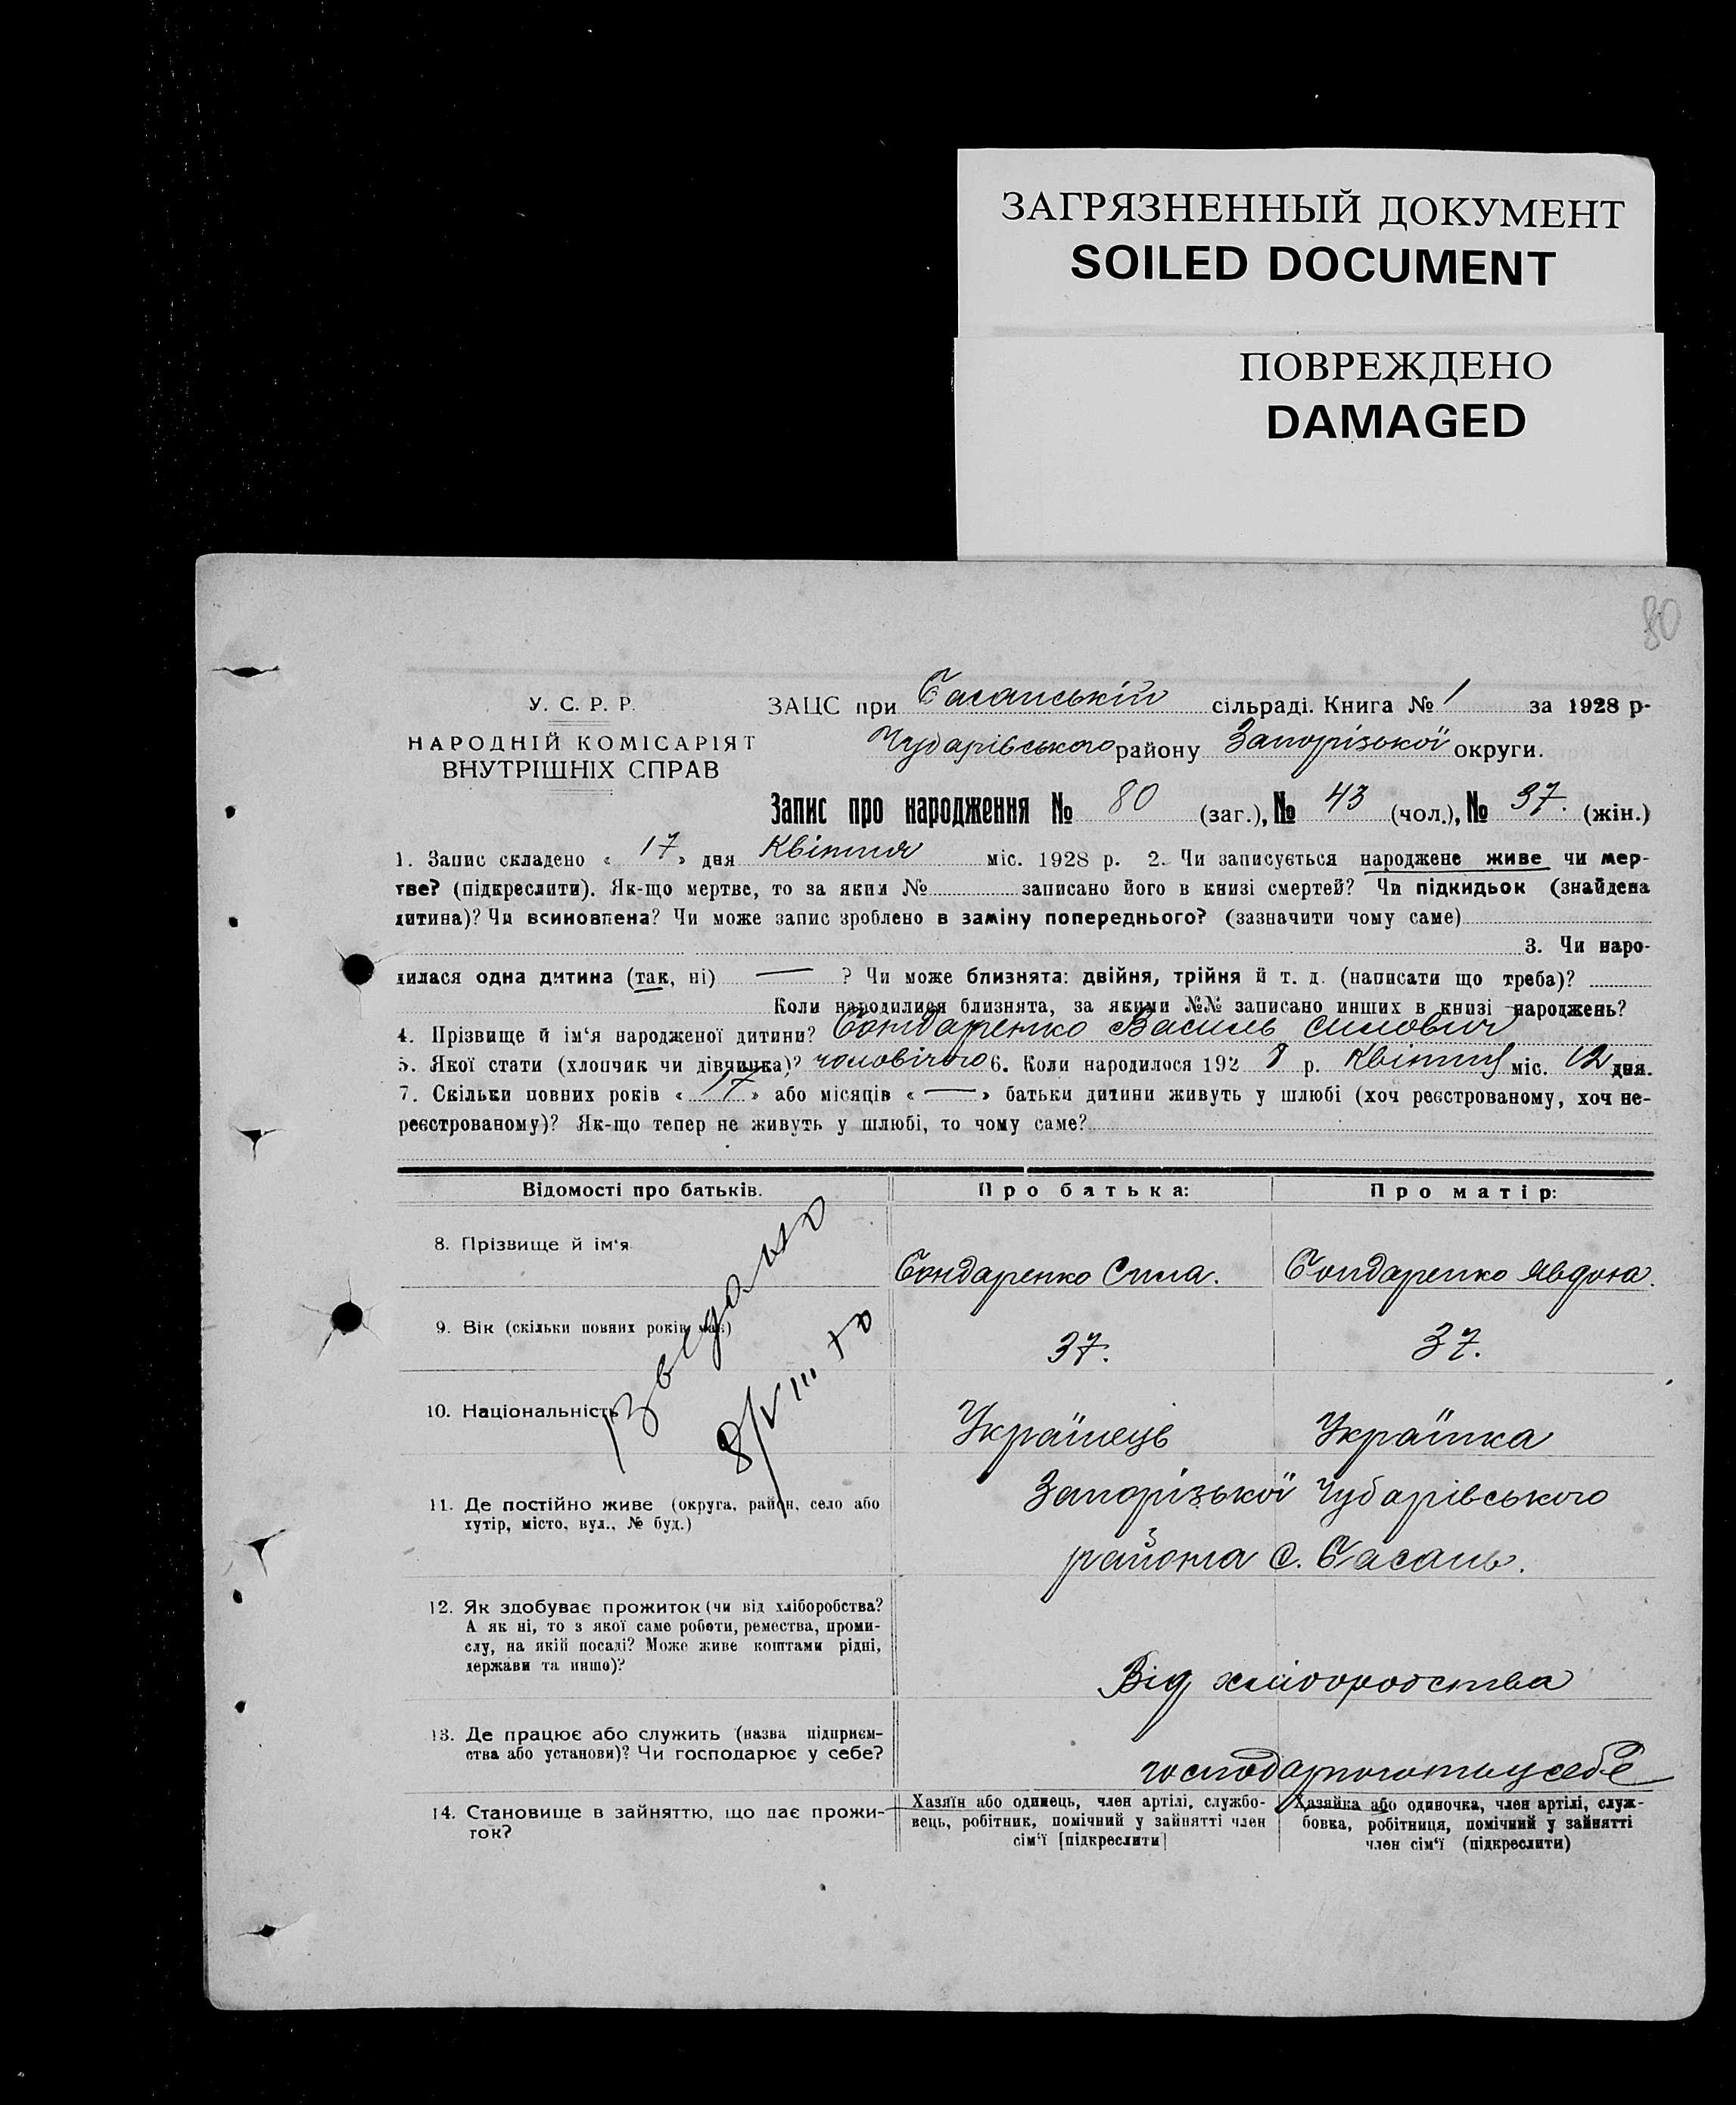 ЗАГРЯЗНЕННЫЙ ДОКУМЕНТ
SOILED DOCUMENT
ПОВРЕЖДЕНО
DAMAGED
80
У. С. Р. Р.
НАРОДНІЙ КОМІСАРІЯТ
ВНУТРІШНІХ СПРАВ
ЗАЦС при Басанській сільраді. Книга № 1 за 1928 р-
Чубарівського району Запорізької округи.
Запис про народження № 80 (заг.), № 43 (чол.), № 37. (жін.)
1. Запис складено « 17 » дня Квітня міс. 1928 р. 2. Чи записується народжене живе чи мер-
тве? (підкреслити). Як-що мертве, то за яким № записано його в книзі смертей? Чи підкидьок (знайдена
дитина)? Чи всиновлена? Чи може запис зроблено в заміну попереднього? (зазначити чому саме)
3. Чи наро-
дилася одна дитина (так, ні) — ? Чи може близнята: двійня, трійня й т. д. (написати що треба)?
Коли народилися близнята, за якими №№ записано инших в книзі народжень?
4. Прізвище й ім‘я народженої дитини? Бондаренко Василь Силович
5. Якої стати (хлопчик чи дівчинка)? чоловічого 6. Коли народилося 192 8 р. Квітня міс. 12 дня.
7. Скільки повних років « 17 » або місяців « — » батьки дитини живуть у шлюбі (хоч реєстрованому, хоч не-
реєстрованому)? Як-що тепер не живуть у шлюбі, то чому саме?
Відомості про батьків.
Про батька:
Про матір:
8. Прізвище й ім‘я
Бондаренко Сила.
Бондаренко Явдоха.
9. Вік (скільки повних років має)
37.
37.
10. Національність
Українець
Українка
11. Де постійно живе (округа, район, село або
хутір, місто, вул., № буд.)
Запорізької Чубарівського
района с. Басань.
12. Як здобуває прожиток (чи від хліборобства?
А як ні, то з якої саме роботи, ремества, проми-
слу, на якій посаді? Може живе коштами рідні,
держави та инше)?
Від хліборобства
13. Де працює або служить (назва підприєм-
ства або установи)? Чи господарює у себе?
господарюють у себе
14. Становище в зайняттю, що дає прожи-
ток?
Хазяїн або одинець, член артілі, службо-
вець, робітник, помічний у зайнятті член
сім‘ї [підкреслити]
Хазяйка або одиночка, член артілі, служ-
бовка, робітниця, помічний у зайнятті
член сім‘ї (підкреслити)